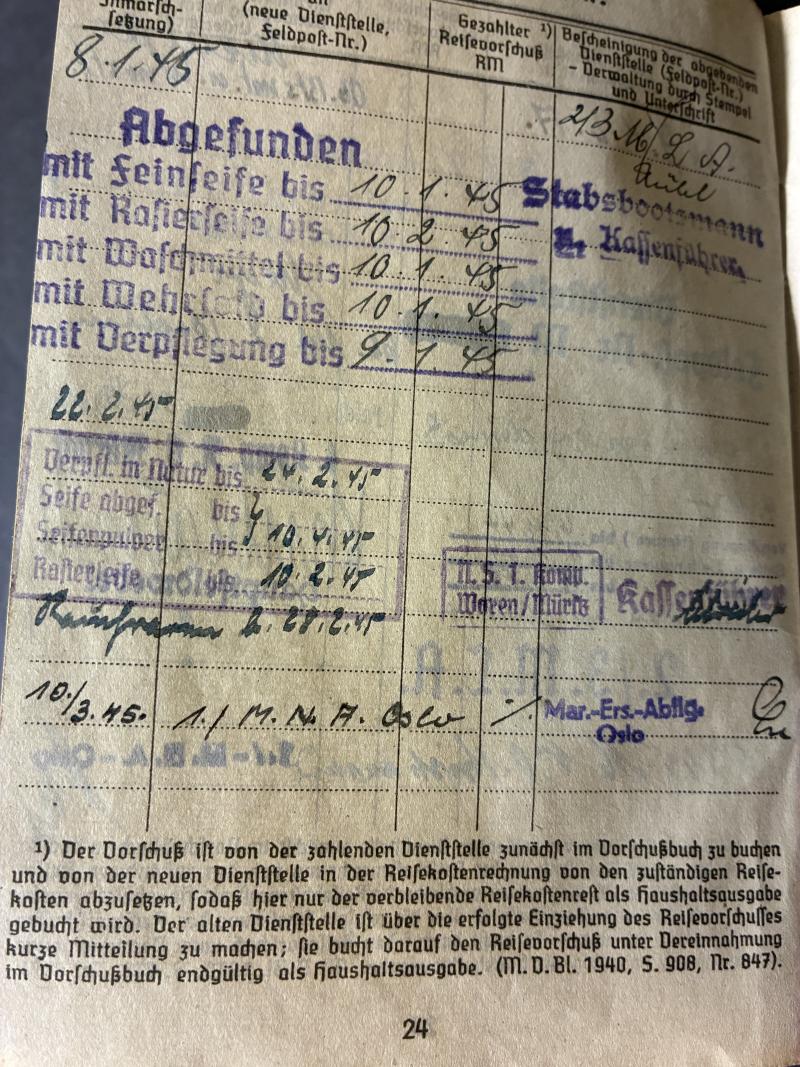 (neue Dienststelle,
Feldpost-Nr.)
setzung)
Gezahlter ¹)
Reisevorschuß
RM
Bescheinigung der abgebenden
Dienststelle (Feldpost-Nr.)
- Verwaltung durch Stempel
und Unterschrift
8.1.45
2/3 M. L. A.
Abgefunden
mit Feinseife bis 10.1.45
mit Rasierseife bis 10.2.45
mit Waschmittel bis 10.1.45
mit Wehrsold bis 10.1.45
mit Verpflegung bis 9.1.45
Stabsbootsmann
u. Kassenführer
22.2.45
Verpfl. in Natur bis 24.2.45
Seife abgef. bis
Seifenpulver bis 10.4.45
Rasierseife bis 10.2.45
28.2.45
Komp.
Waren/Müritz
Kassenführer
10/3.45. 1./ M. N. A. Oslo %
Mar.-Ers.-Abtlg.
Oslo
¹) Der Vorschuß ist von der zahlenden Dienststelle zunächst im Vorschußbuch zu buchen
und von der neuen Dienststelle in der Reisekostenrechnung von den zuständigen Reise-
kosten abzusetzen, sodaß hier nur der verbleibende Reisekostenrest als Haushaltsausgabe
gebucht wird. Der alten Dienststelle ist über die erfolgte Einziehung des Reisevorschusses
kurze Mitteilung zu machen; sie bucht darauf den Reisevorschuß unter Vereinnahmung
im Vorschußbuch endgültig als Haushaltsausgabe. (M. D. Bl. 1940, S. 908, Nr. 847).
24